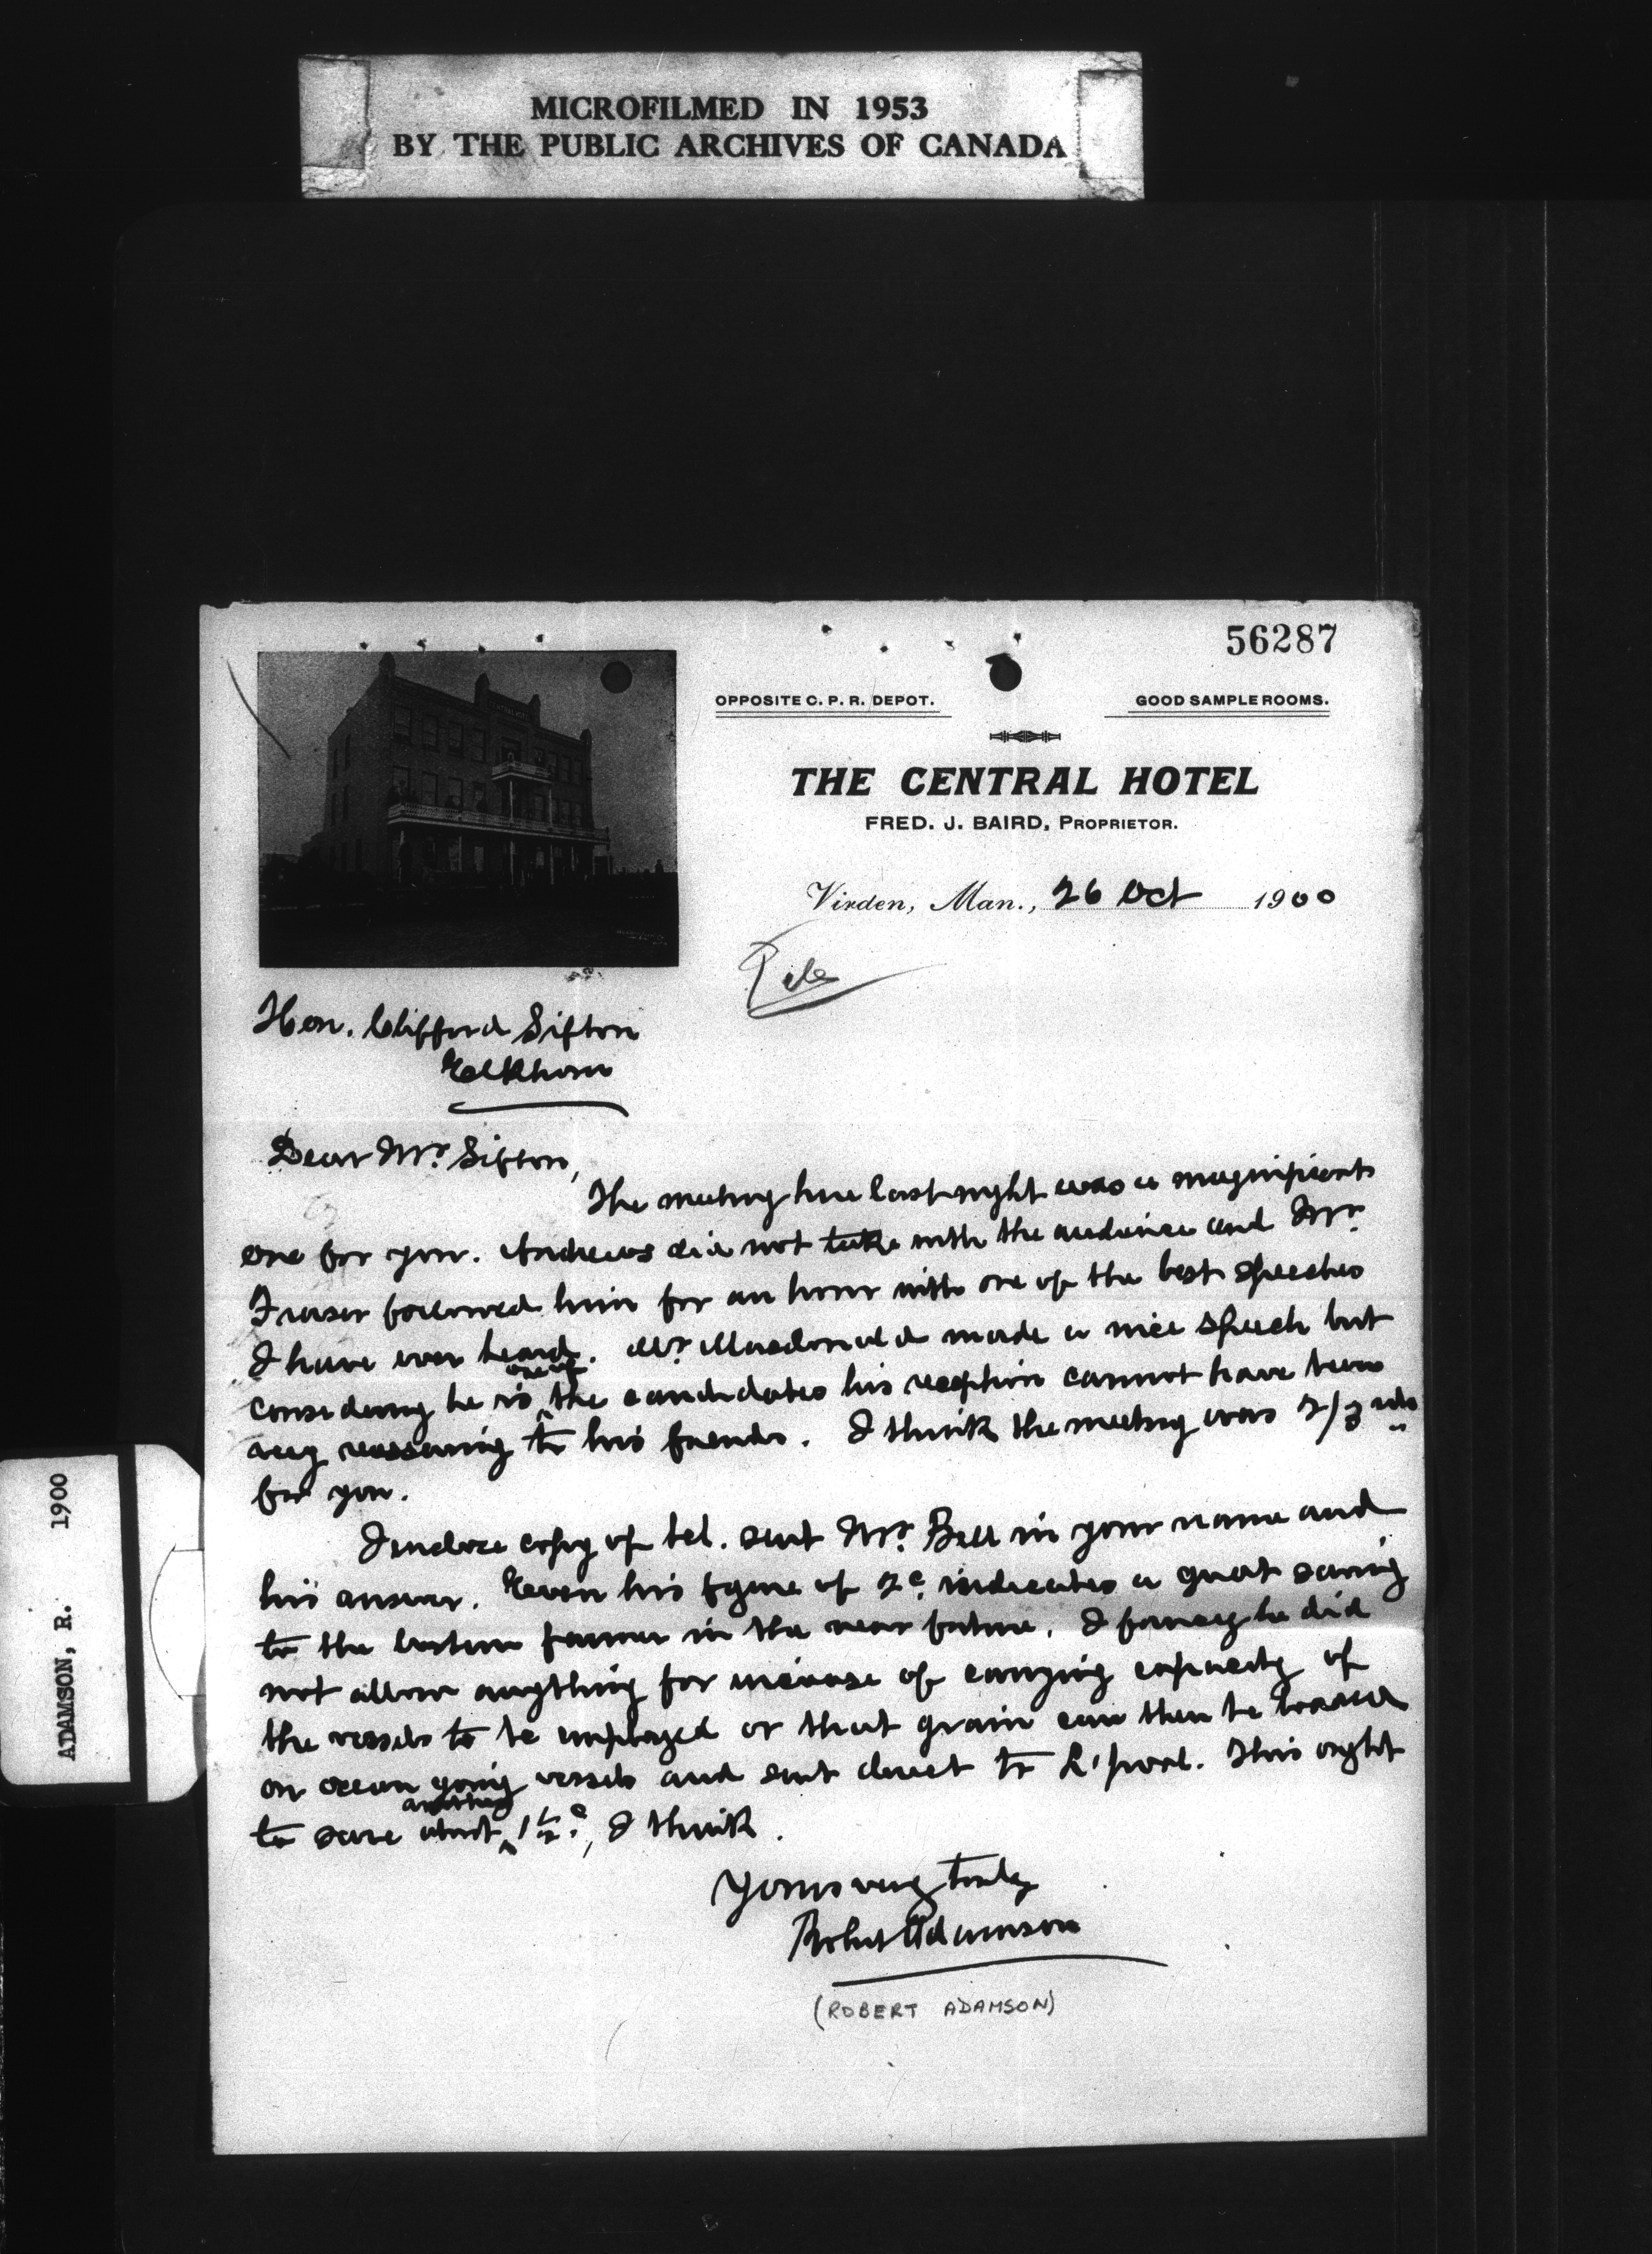 MICROFILMED IN 1953
BY THE PUBLIC ARCHIVES OF CANADA
56287
OPPOSITE C. P. R. DEPOT.
GOOD SAMPLE ROOMS.
THE CENTRAL HOTEL
FRED. J. BAIRD, PROPRIETOR.
Virden, Man., 26 Oct 1900
File
Hon. Clifford Sifton
Elkhorn
Dear Mr. Sifton,
The meeting here last night was a magnificent
one for you. Andrews did not take with the audience and Mr.
Fraser followed him for an hour with one of the best speeches
I have ever heard. Mr. Macdonald made a nice speech but
considering he is one of the candidates his reception cannot have been
very reassuring to his friends. I think the meeting was 2/3rds
for you.
I enclose copy of tel. sent Mr. Bell in your name and
his answer. Even his figure of 2c. indicates a great saving
to the western farmer in the near future. I fancy he did
not allow anything for increase of carrying capacity of
the vessels to be employed or that grain can then be loaded
on ocean going vessels and sent direct to L'pool. This ought
to save about another 1½c., I think.
Yours very truly
Robert Adamson
(ROBERT ADAMSON)
ADAMSON, R. 1900